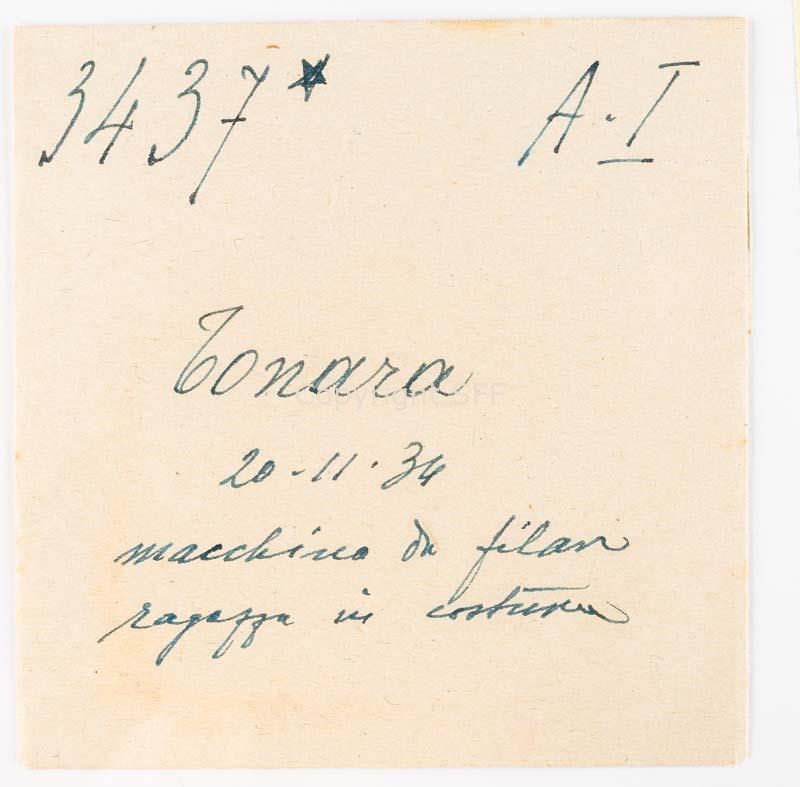 3437* A-I
Tonara
20-11-34
macchina da filare
ragazza in costume
Copyright SFF